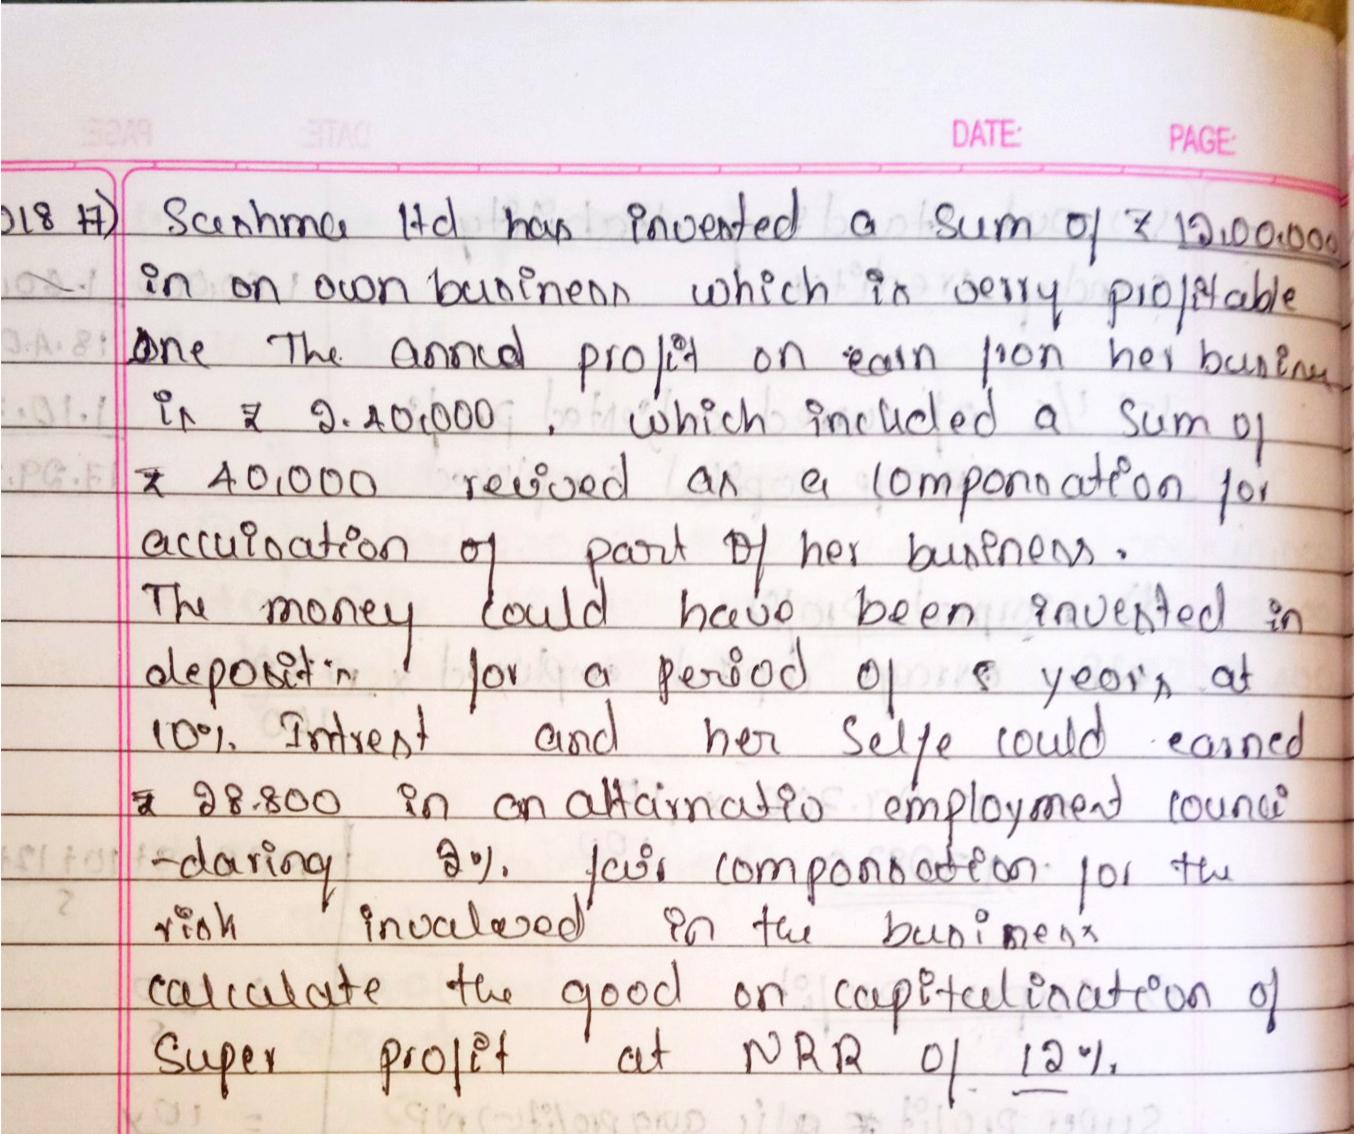 DATE: PAGE:
018 17) Sushma ltd has invested a sum of ₹ 12,00,000
in on own business which is verry profitable
One The annual profit on earn from her busine
is ₹ 2.40,000. which included a sum of
₹ 40,000 revived as a componsation for
accuisation of part of her business.
The money could have been invested in
deposit in for a period of years at
10%. Intrest and her selfe could earned
₹ 28.800 in an altairnatio employment counci
-daring 2%. fair componsation for the
risk invalaved in the business
calculate the good on capitalisation of
Super profit at NRR of 12%.